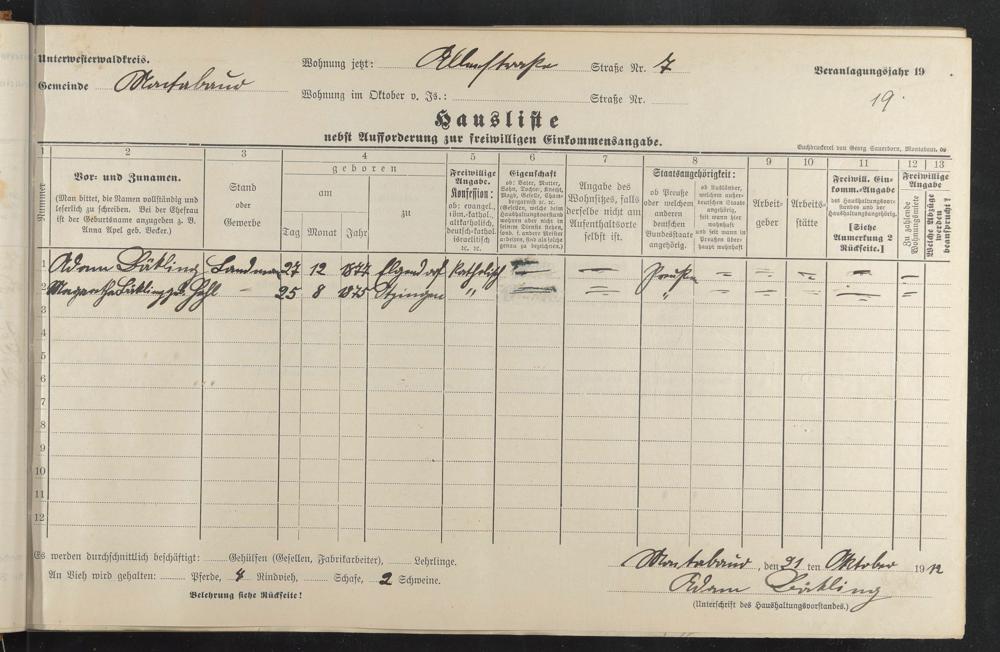 Unterwesterwaldkreis.
Wohnung jetzt: Allerstraße Straße Nr. 7
Veranlagungsjahr 19
Gemeinde Montabaur
Wohnung im Oktober v. Js.: Straße Nr.
19.
Hausliste
nebst Aufforderung zur freiwilligen Einkommensangabe.
Buchdruckerei von Georg Sauerborn, Montabaur.
1 2 3 4 5 6 7 8 9 10 11 12 13
Nummer
Vor- und Zunamen.
(Man bittet, die Namen vollständig und
leserlich zu schreiben. Bei der Ehefrau
ist der Geburtsname anzugeben z. B.
Anna Apel geb. Becker.)
Stand
oder
Gewerbe
geboren
am
zu
Tag Monat Jahr
Freiwillige
Angabe.
Konfession:
ob: evangel.,
röm.-kathol.,
altkatholisch,
deutsch-kathol.
israelitisch
ec. ec.
Eigenschaft
ob: Vater, Mutter,
Sohn, Tochter, Knecht,
Magd, Geselle, Cham-
bregarnist ec. ec.
(Gesellen, welche beim
Haushaltungsvorstand
wohnen aber nicht in
seinem Dienste stehen,
sond. f. andere Meister
arbeiten, sind als solche
genau zu bezeichnen.)
Angabe des
Wohnsitzes, falls
derselbe nicht am
Aufenthaltsorte
selbst ist.
Staatsangehörigkeit:
ob Preuße
oder welchem
anderen
deutschen
Bundesstaate
angehörig.
ob Ausländer,
welchem außer-
deutschen Staate
angehörig,
seit wann hier
wohnhaft
und seit wann in
Preußen über-
haupt wohnhaft
Arbeit-
geber
Arbeits-
stätte
Freiwill. Ein-
komm.-Angabe
des Haushaltungsvor-
standes und der
Haushaltungsangehörig.
[Siehe
Anmerkung 2
Rückseite.]
Freiwillige
Angabe
Zu zahlende
Wohnungsmiete
Welche Abzüge
werden
beansprucht?
1 Adam Bäkling Landmann 27 12 1877 Elgendorf Katholisch Preuße
2 Bäkling geb. 25 8 1875 Etzingen " "
3
4
5
6
7
8
9
10
11
12
Es werden durchschnittlich beschäftigt: Gehülfen (Gesellen, Fabrikarbeiter), Lehrlinge.
An Vieh wird gehalten: Pferde, 4 Rindvieh, Schafe, 2 Schweine.
Belehrung siehe Rückseite!
Montabaur, den 21 ten Oktober 1912
Adam Bäkling
(Unterschrift des Haushaltungsvorstandes.)